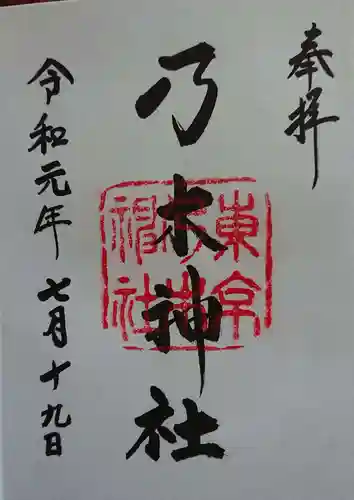 奉拝
乃木神社
東京
乃木
神社
令和元年七月十九日